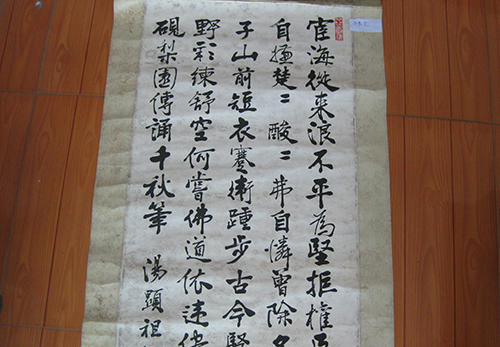 宦海從来浪不平為堅拒權
自楚〻酸〻弗自憐曾除
子山前短衣蹇衛踵步古今
野彩練舒空何嘗佛道依違
硯梨園傳誦千秋筆 湯顯祖